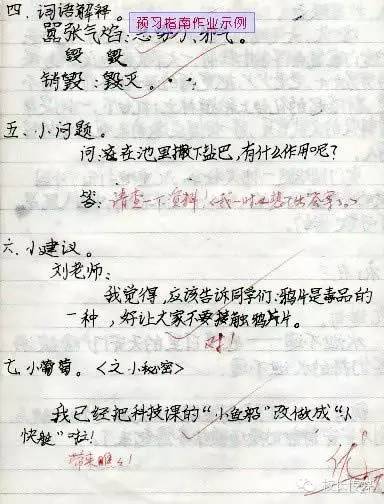 预习指南作业示例
四、词语解释。
嚣张气焰:
毁 毁
销毁:毁灭。
五、小问题。
问:在池里撒下盐巴,有什么作用呢?
答:请查一下资料!(我一时也答不出答案。)
六、小建议。
刘老师:
我觉得,应该告诉同学们:鸦片是毒品的
一种,好让大家不要接触鸦片。
对!
七、小葡萄。<之小秘密>
我已经把科技课的“小鱼船”改做成“小
快艇”啦!
带来瞧瞧!
优